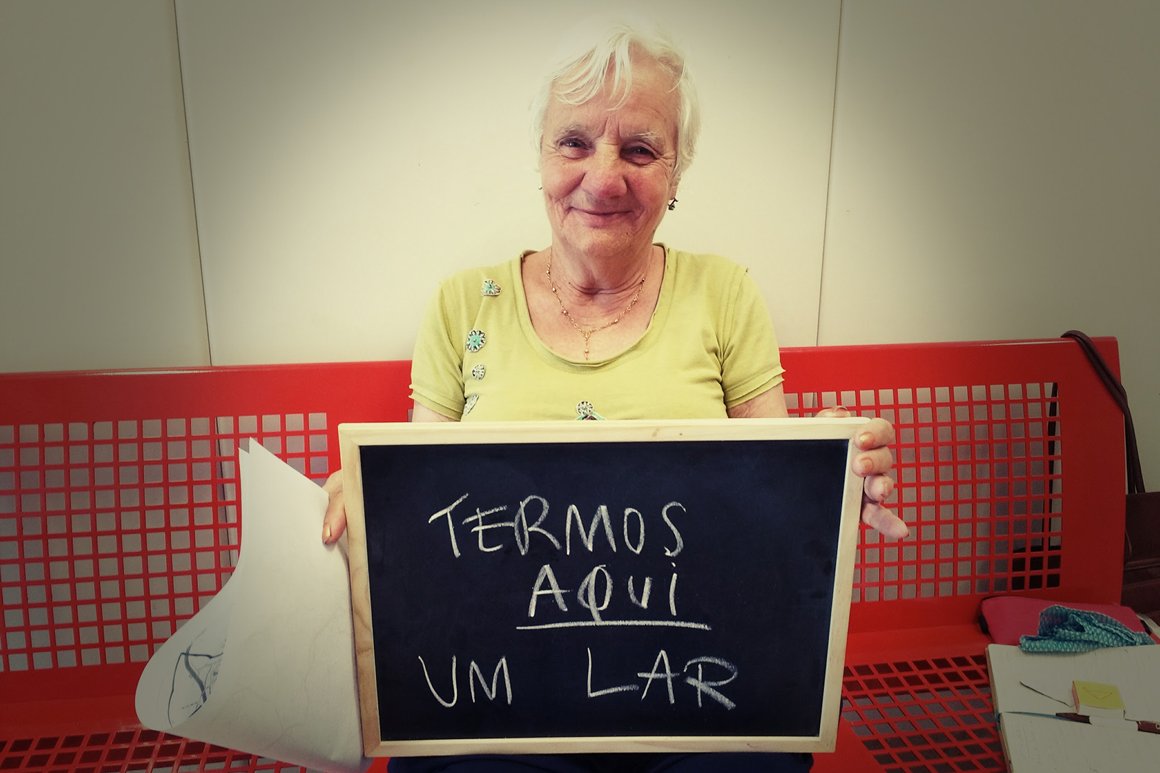 TERMOS
AQUI
UM LAR